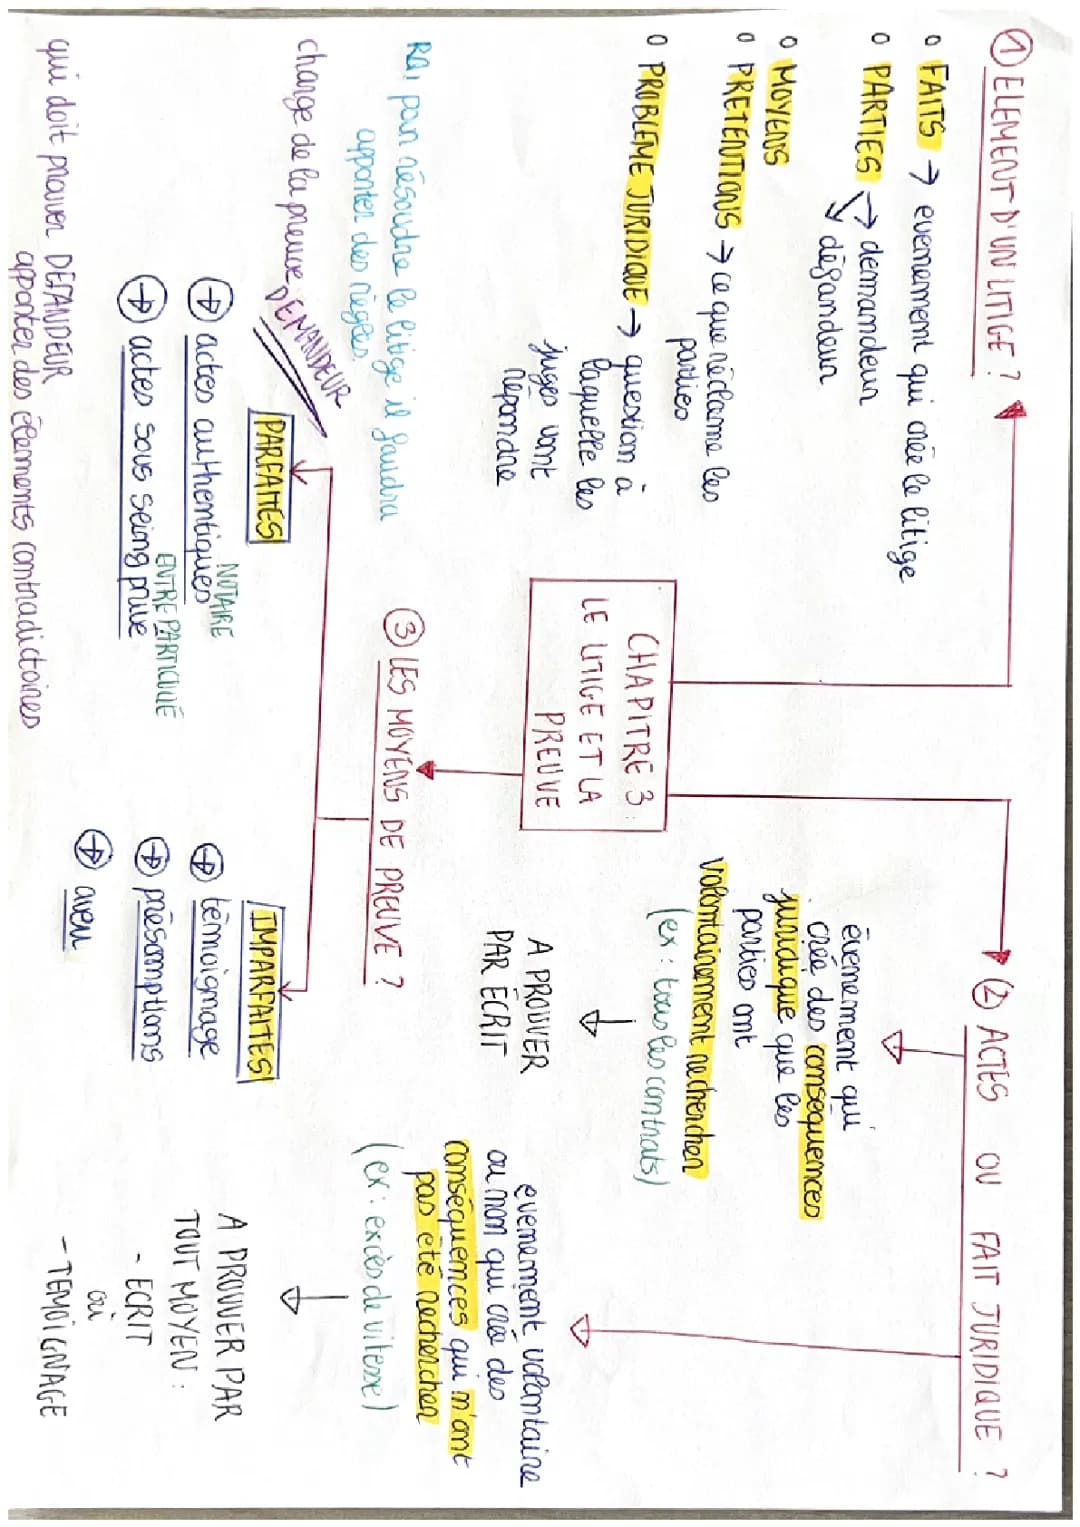 ① ELEMENT D'UN LITIGE ?
o FAITS → evenement qui crée le litige
o PARTIES → demandeur
→ défandeur
o MOYENS
o PRETENTIONS → ce que réclame les
parties
o PROBLEME JURIDIQUE → question à
laquelle les
juges vont
répondre
CHAPITRE 3 :
LE LITIGE ET LA
PREUVE
② ACTES OU FAIT JURIDIQUE ?
évènement qui
crée des consequences
juridique que les
parties ont
volontairement rechercher
(ex : tous les contrats)
A PROUVER
PAR ÉCRIT
evenement volontaire
ou non qui crée des
conséquences qui n'ont
pas été rechercher
(ex : excès de vitesse)
A PROUVER PAR
TOUT MOYEN :
- ECRIT
ou
- TEMOIGNAGE
③ LES MOYENS DE PREUVE ?
PARFAITES
→ actes authentiques
NOTAIRE
→ actes sous seing privé
ENTRE PARTICULIÉ
IMPARFAITES
→ témoignage
→ présomptions
→ aveu
pour résoudre le litige il faudra
apporter des règles
charge de la preuve DEMANDEUR
qui doit prouver DEFANDEUR
apporter des élements contradictoires